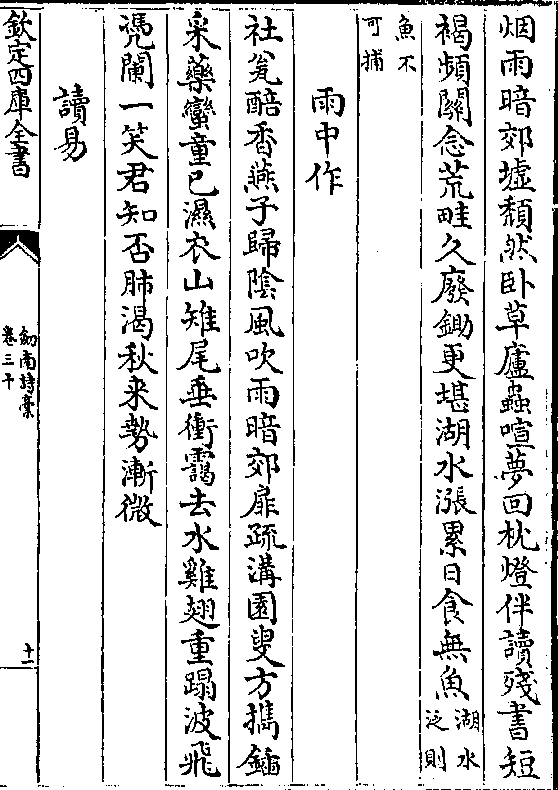 烟雨暗郊墟頽然卧草廬蟲喧夢回枕燈伴讀殘書短
褐頻關念荒畦久廢鋤更堪湖水漲累日食無魚湖水泛則
魚不可捕
雨中作
社瓮醅香燕子歸陰風吹雨暗郊扉疏溝園叟方擕鍤
采藥蠻童已濕衣山雉尾垂衝靄去水雞翅重蹋波飛
凭闌一笑君知否肺渴秋来勢漸微
讀易
欽定四庫全書
劒南詩稾
卷三十
十一